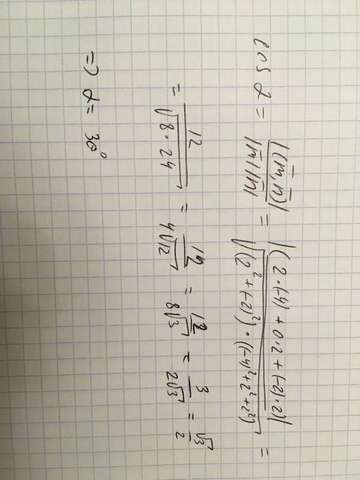 cos α = |(m̄,n̄)| / |m̄||n̄| = |(2·(-4) + 0·2 + (-2)·2)| / √(2²+(-2)²)·((-4)²+2²+2²) =
= 12 / √8·24 = 12 / 4√12 = 12 / 8√3 = 3 / 2√3 = √3 / 2
=> α = 30°